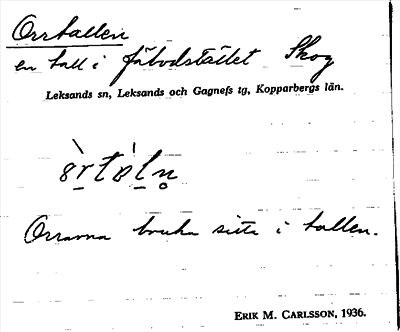 Orrtallen
en tall i fäbodstället Skog
Leksands sn, Leksands och Gagnefs tg, Kopparbergs län.
òrtàln
Orrarna bruka sitta i tallen.
ERIK M. CARLSSON, 1936.